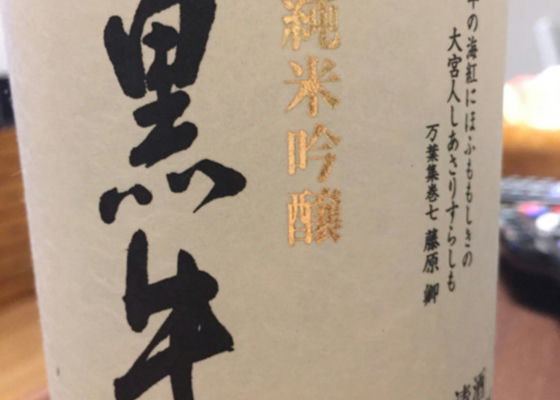 牛の海紅にほふももしきの
大宮人しあさりすらしも
万葉集巻七 藤原卿
純米吟醸
黒牛